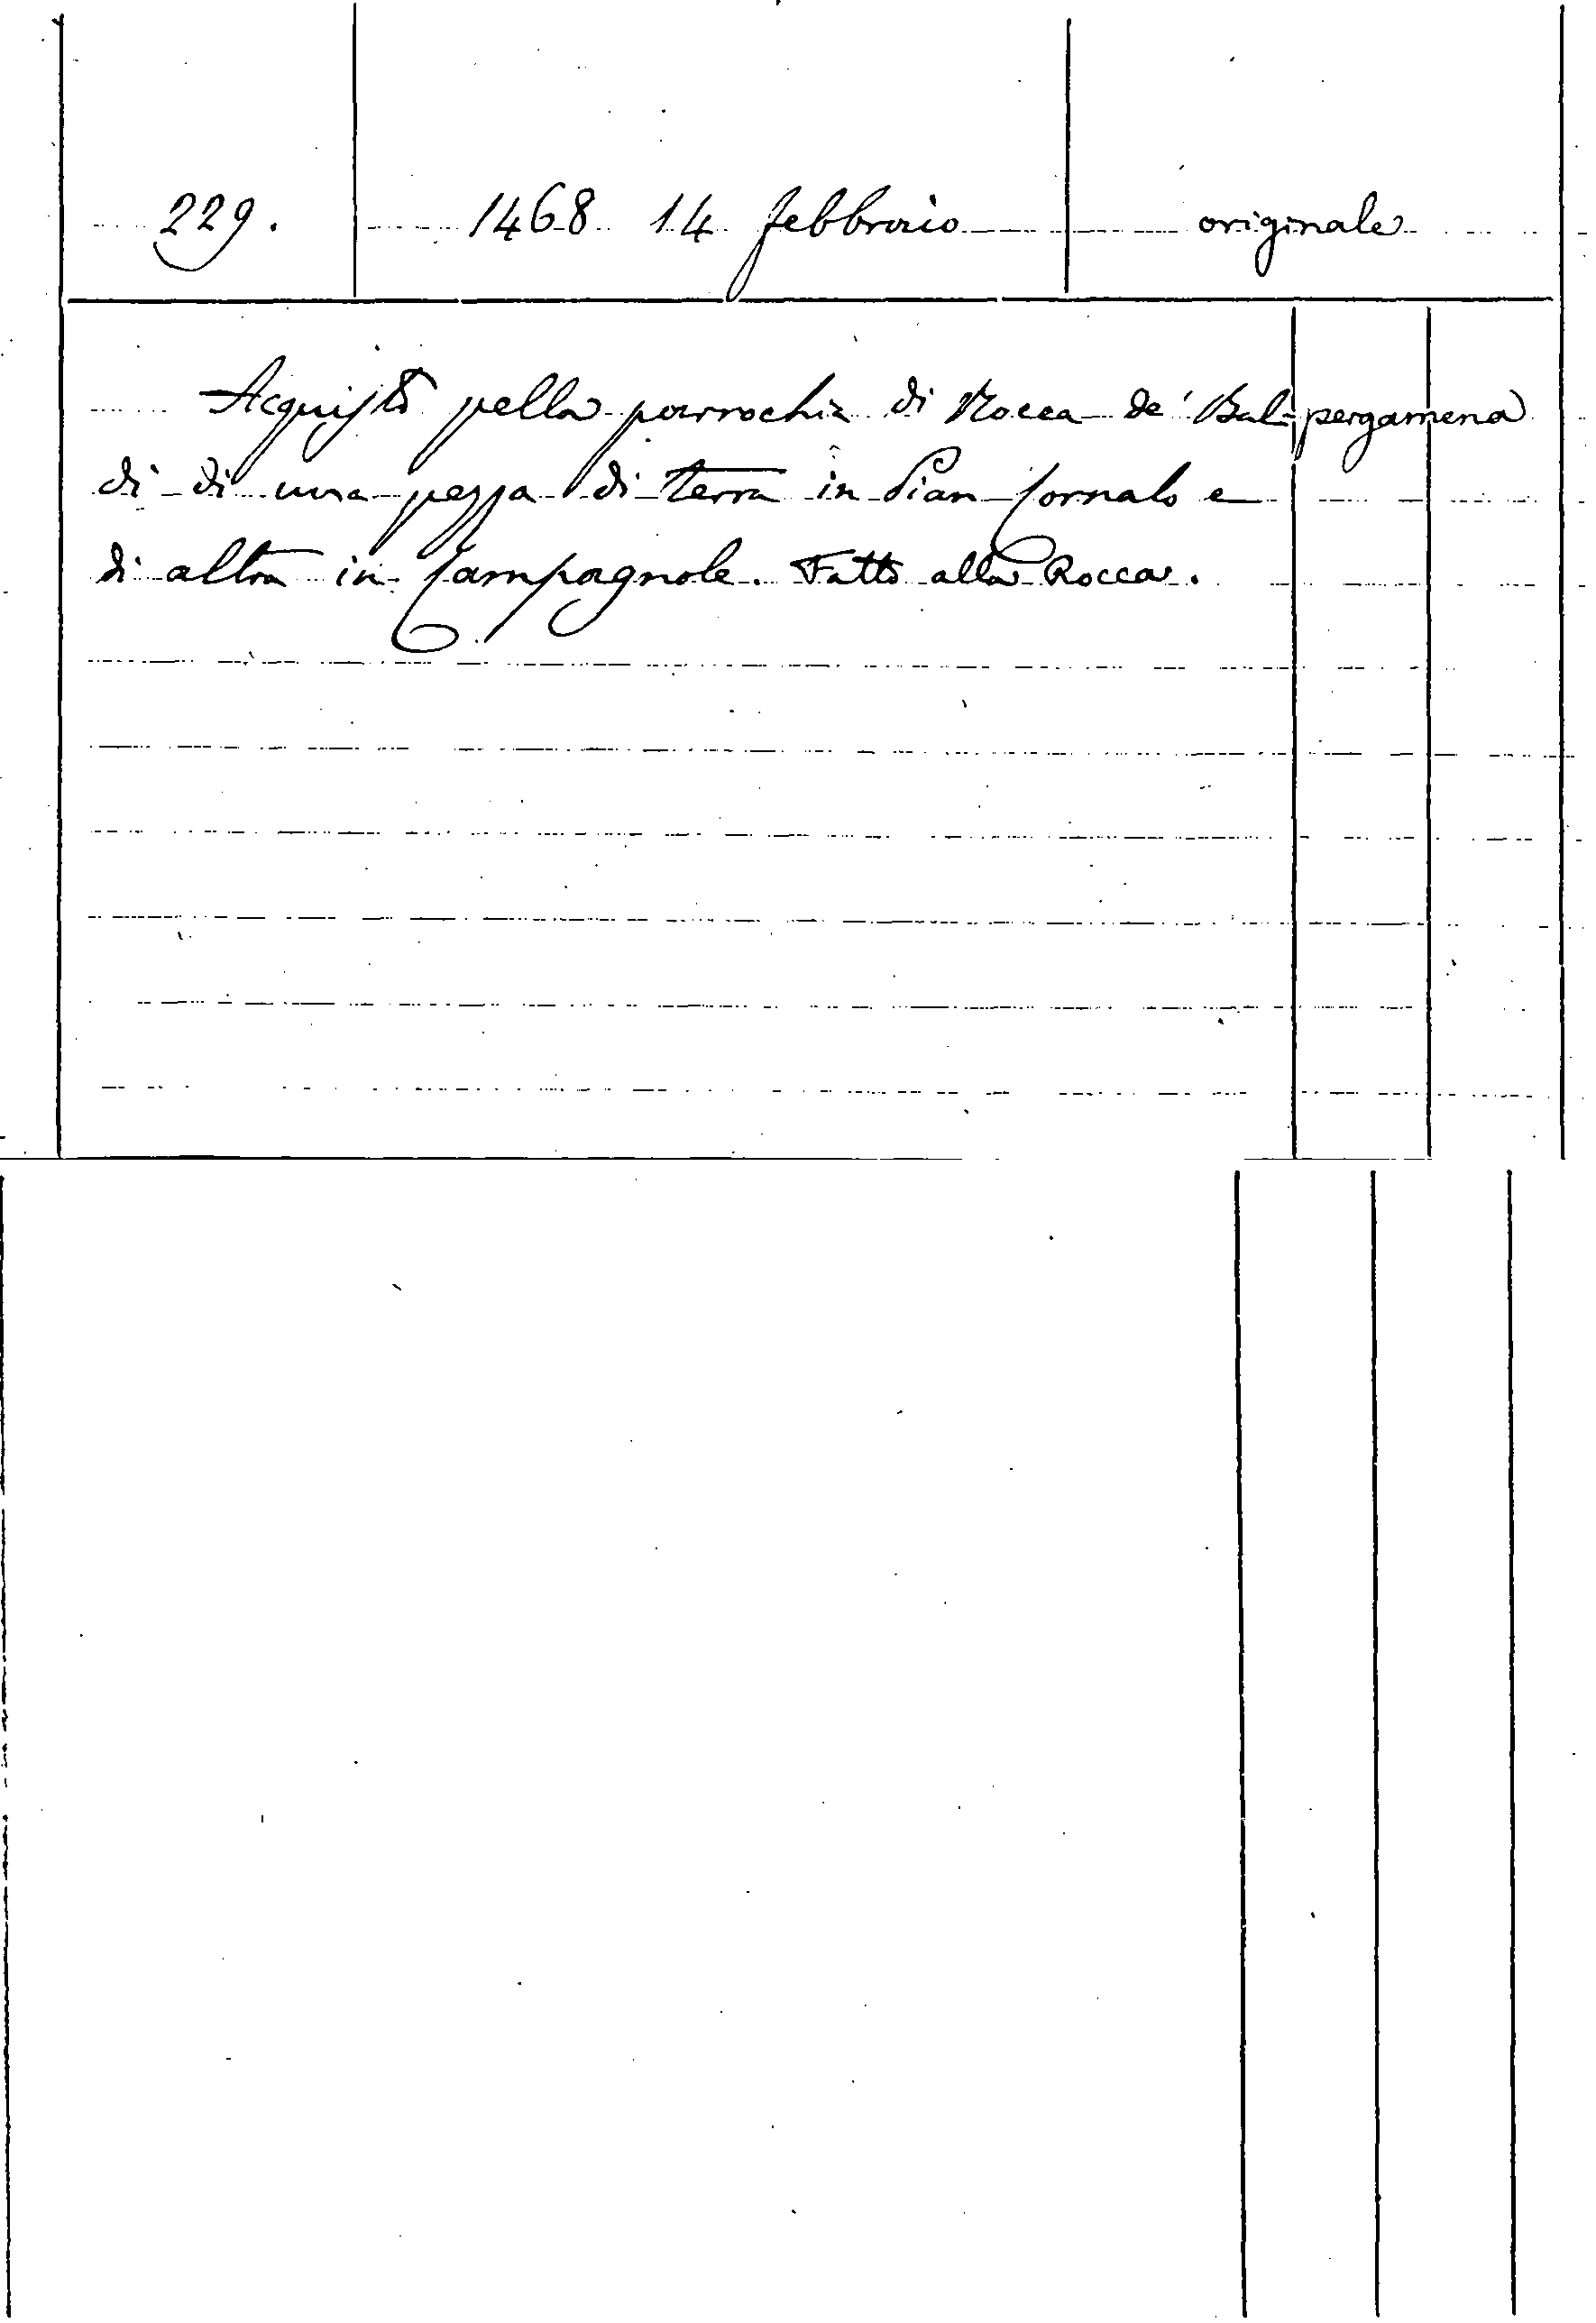 229. 1468 14 febbraio originale
Acquisto pella parrochia di Rocca de' Bal- pergamena
di di una pezza di terra in Pian Cornalo e
di altra in Campagnole. Fatto alla Rocca.